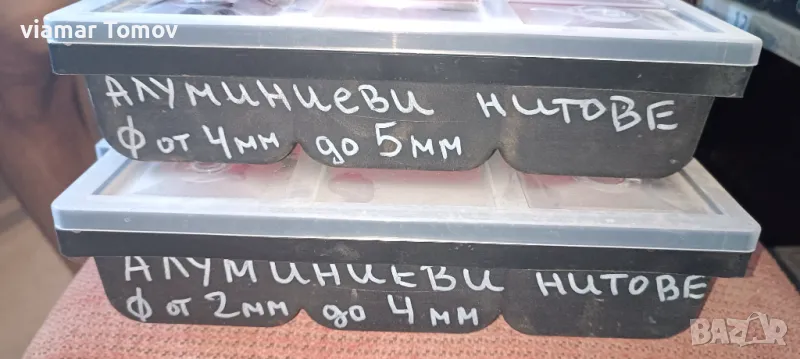 viamar Tomov
АЛУМИНИЕВИ НИТОВЕ
ф от 4мм до 5мм
АЛУМИНИЕВИ НИТОВЕ
ф от 2мм до 4мм
BAZAR